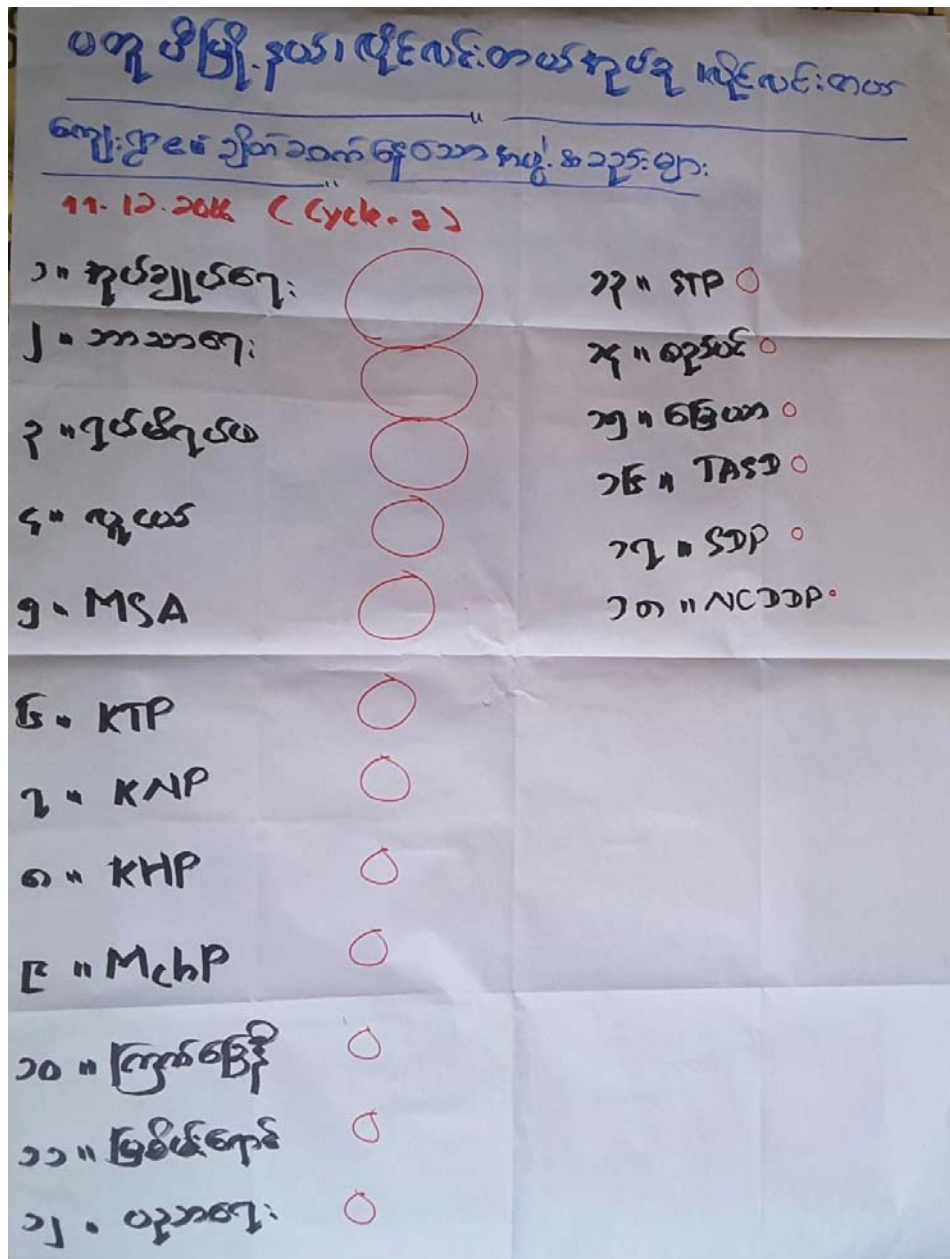 မတူပီမြို့နယ်၊ လှိုင်လင်းတယ်အုပ်စု ၊ လှိုင်လင်းတယ်
ကျေးရွာ၏ ချိတ်ဆက်နေသော အဖွဲ့အစည်းများ
11.12.2016 (Cycle-3)
၁။ အုပ်ချုပ်ရေး
၂။ ဘာသာရေး
၃။ ရပ်မိရပ်ဖ
၄။ လူငယ်
၅။ MSA
၆။ KTP
၇။ KNP
၈။ KHP
၉။ MchP
၁၀။ ကြက်ခြေနီ
၁၁။ မြစိမ်းရောင်
၁၂။ ပညာရေး
၁၃။ STP
၁၄။ စည်ပင်
၁၅။ မြေယာ
၁၆။ TASD
၁၇။ SDP
၁၈။ NCDDP